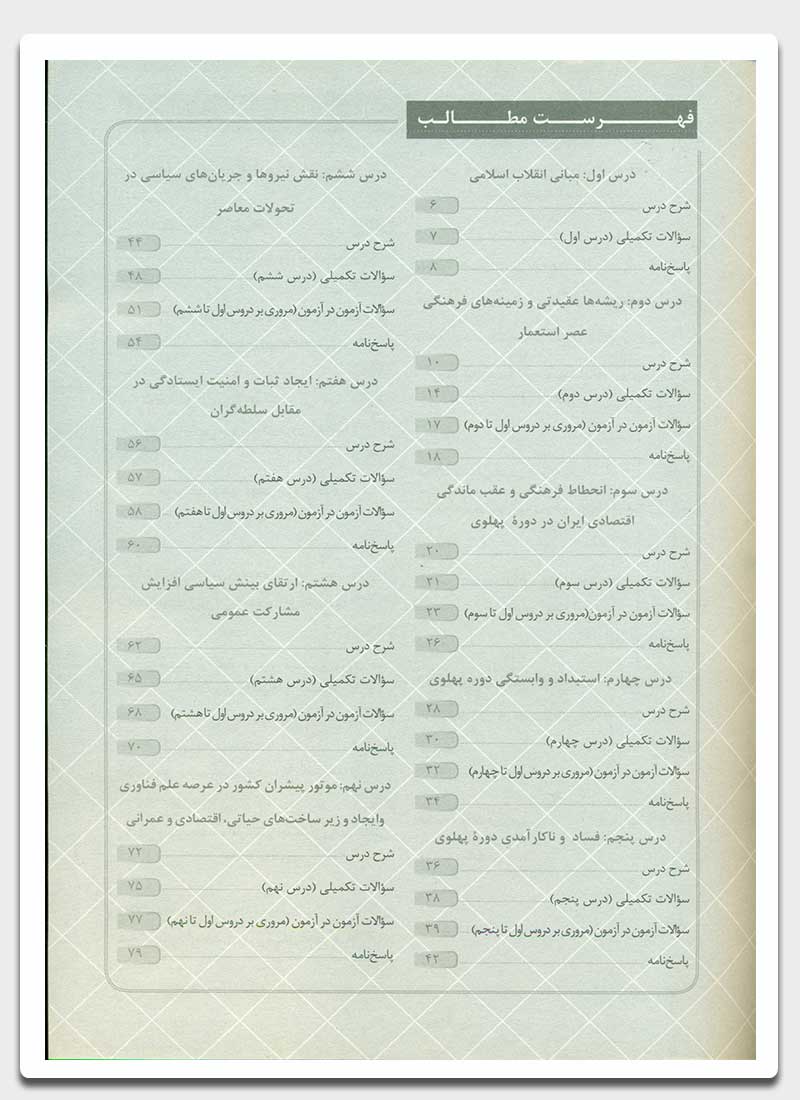 فهرست مطالب
درس اول: مبانی انقلاب اسلامی
شرح درس ۶
سؤالات تکمیلی (درس اول) ۷
پاسخ‌نامه ۸
درس دوم: ریشه‌ها عقیدتی و زمینه‌های فرهنگی
عصر استعمار
شرح درس ۱۰
سؤالات تکمیلی (درس دوم) ۱۴
سؤالات آزمون در آزمون (مروری بر دروس اول تا دوم) ۱۷
پاسخ‌نامه ۱۸
درس سوم: انحطاط فرهنگی و عقب ماندگی
اقتصادی ایران در دورۀ پهلوی
شرح درس ۲۰
سؤالات تکمیلی (درس سوم) ۲۱
سؤالات آزمون در آزمون(مروری بر دروس اول تا سوم) ۲۳
پاسخ‌نامه ۲۶
درس چهارم: استبداد و وابستگی دوره پهلوی
شرح درس ۲۸
سؤالات تکمیلی (درس چهارم) ۳۰
سؤالات آزمون در آزمون (مروری بر دروس اول تا چهارم) ۳۲
پاسخ‌نامه ۳۴
درس پنجم: فساد و ناکارآمدی دورۀ پهلوی
شرح درس ۳۶
سؤالات تکمیلی (درس پنجم) ۳۸
سؤالات آزمون در آزمون (مروری بر دروس اول تا پنجم) ۳۹
پاسخ‌نامه ۴۲
درس ششم: نقش نیروها و جریان‌های سیاسی در
تحولات معاصر
شرح درس ۴۴
سؤالات تکمیلی (درس ششم) ۴۸
سؤالات آزمون در آزمون (مروری بر دروس اول تا ششم) ۵۱
پاسخ‌نامه ۵۴
درس هفتم: ایجاد ثبات و امنیت ایستادگی در
مقابل سلطه‌گران
شرح درس ۵۶
سؤالات تکمیلی (درس هفتم) ۵۷
سؤالات آزمون در آزمون (مروری بر دروس اول تا هفتم) ۵۸
پاسخ‌نامه ۶۰
درس هشتم: ارتقای بینش سیاسی افزایش
مشارکت عمومی
شرح درس ۶۲
سؤالات تکمیلی (درس هشتم) ۶۵
سؤالات آزمون در آزمون (مروری بر دروس اول تا هشتم) ۶۸
پاسخ‌نامه ۷۰
درس نهم: موتور پیشران کشور در عرصه علم فناوری
وایجاد و زیر ساخت‌های حیاتی، اقتصادی و عمرانی
شرح درس ۷۲
سؤالات تکمیلی (درس نهم) ۷۵
سؤالات آزمون در آزمون (مروری بر دروس اول تا نهم) ۷۷
پاسخ‌نامه ۷۹